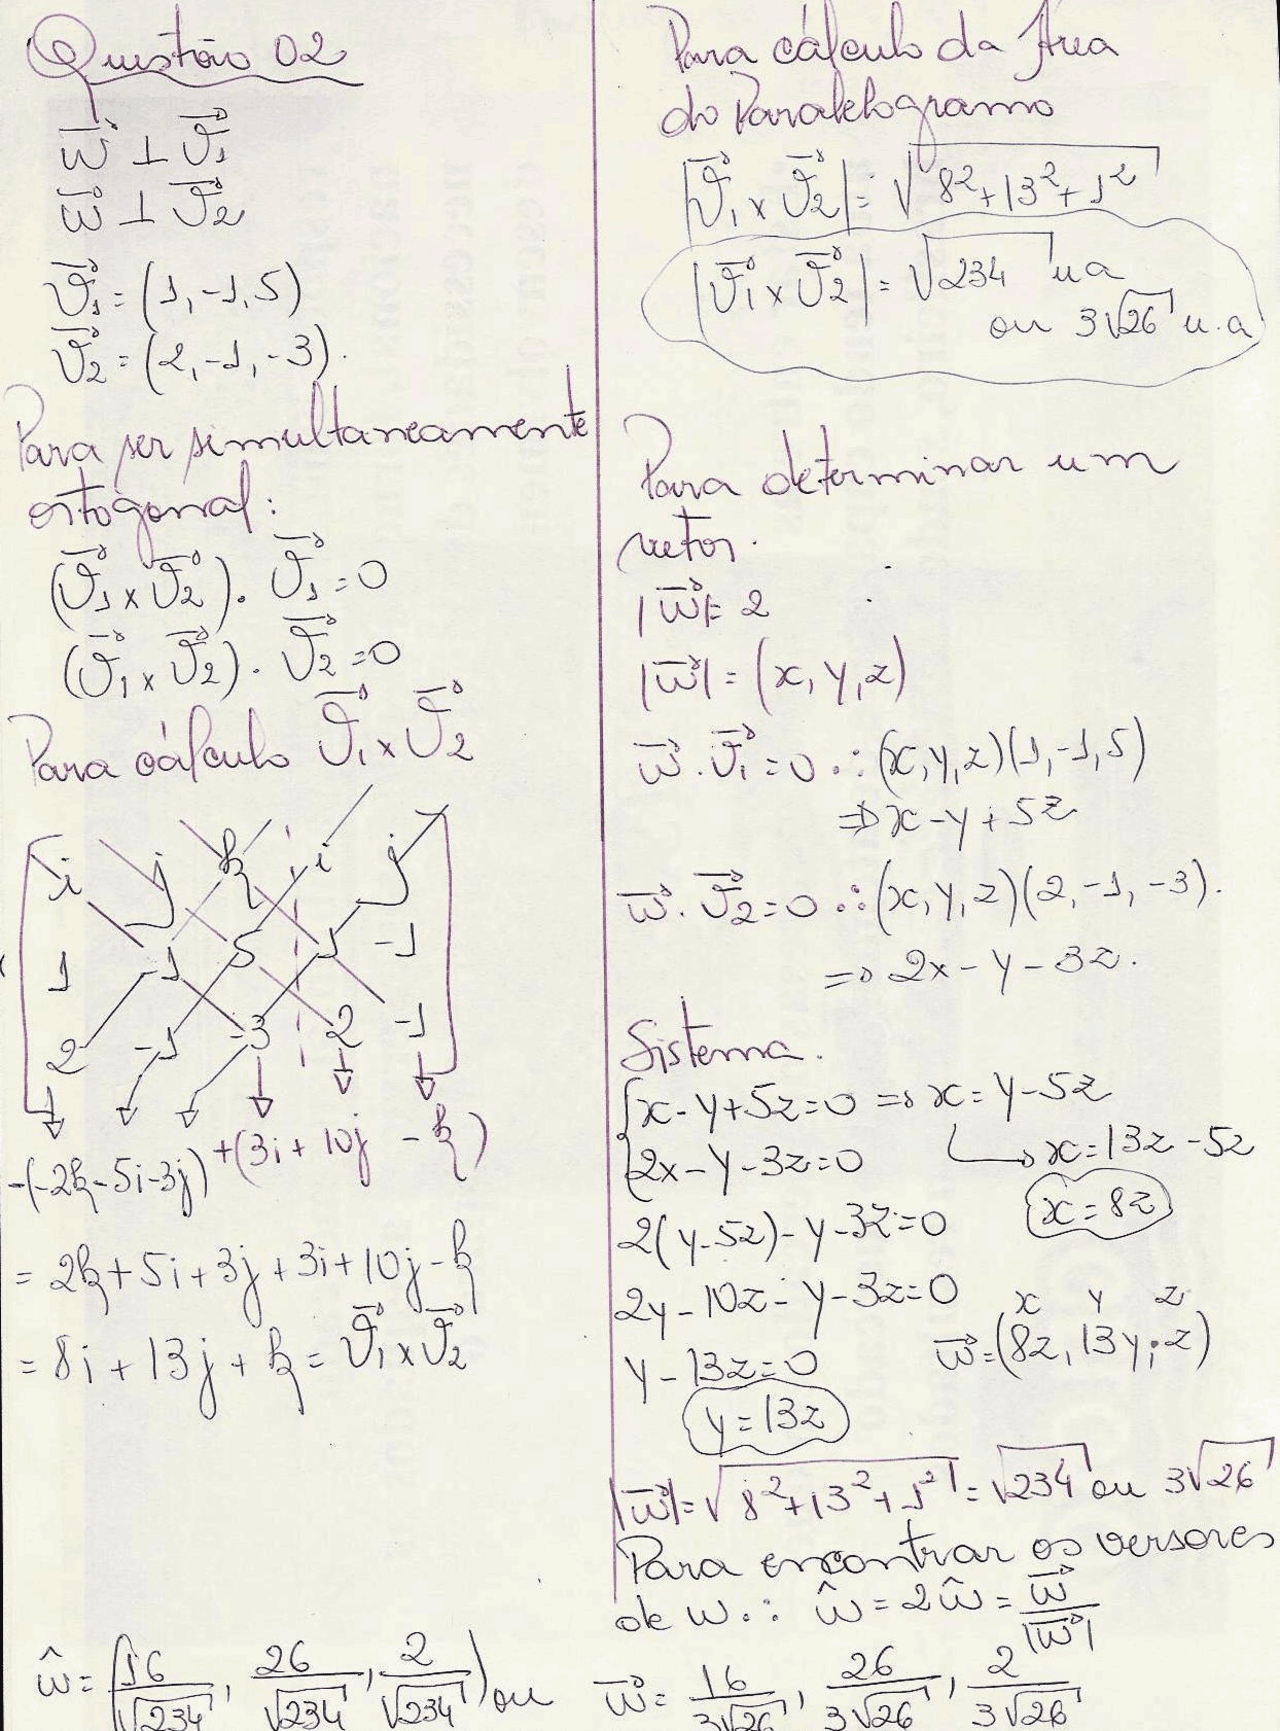 Questão 02
w⃗ ⊥ v⃗1
w⃗ ⊥ v⃗2
v⃗1 = (1, -1, 5)
v⃗2 = (2, -1, -3).
Para ser simultaneamente
ortogonal:
(v⃗1 x v⃗2). v⃗1 = 0
(v⃗1 x v⃗2). v⃗2 = 0
Para cálculo v⃗1 x v⃗2
i j k i j
1 -1 5 1 -1
2 -1 -3 2 -1
-(-2k-5i-3j) +(3i + 10j - k)
= 2k+5i+3j+3i+10j-k
= 8i + 13j + k = v⃗1 x v⃗2
Para cálculo da Área
do Paralelogramo
|v⃗1 x v⃗2| = √8²+13²+1²
|v⃗1 x v⃗2| = √234 ua
ou 3√26 u.a
Para determinar um
vetor.
|w⃗|= 2
|w⃗| = (x, y, z)
w⃗ . v⃗1 = 0 ∴ (x, y, z)(1, -1, 5)
⇒ x - y + 5z
w⃗ . v⃗2 = 0 ∴ (x, y, z)(2, -1, -3).
⇒ 2x - y - 3z.
Sistema.
{x - y + 5z = 0 ⇒ x = y - 5z
{2x - y - 3z = 0 ↳ x = 13z - 5z
x = 8z
2(y-5z) - y - 3z = 0
2y - 10z - y - 3z = 0
x y z
y - 13z = 0 w⃗ = (8z, 13y; z)
y = 13z
|w⃗| = √8²+13²+1² = √234 ou 3√26
Para encontrar os versores
de w ∴ ŵ = 2ŵ = w⃗/|w⃗|
ŵ = (16/√234, 26/√234, 2/√234) ou w⃗ = 16/3√26, 26/3√26, 2/3√26